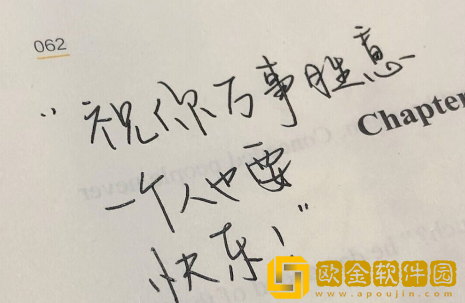 062
“祝你万事胜意
Chapter
一个人也要
快乐！”
欧金软件园
www.apoujin.com